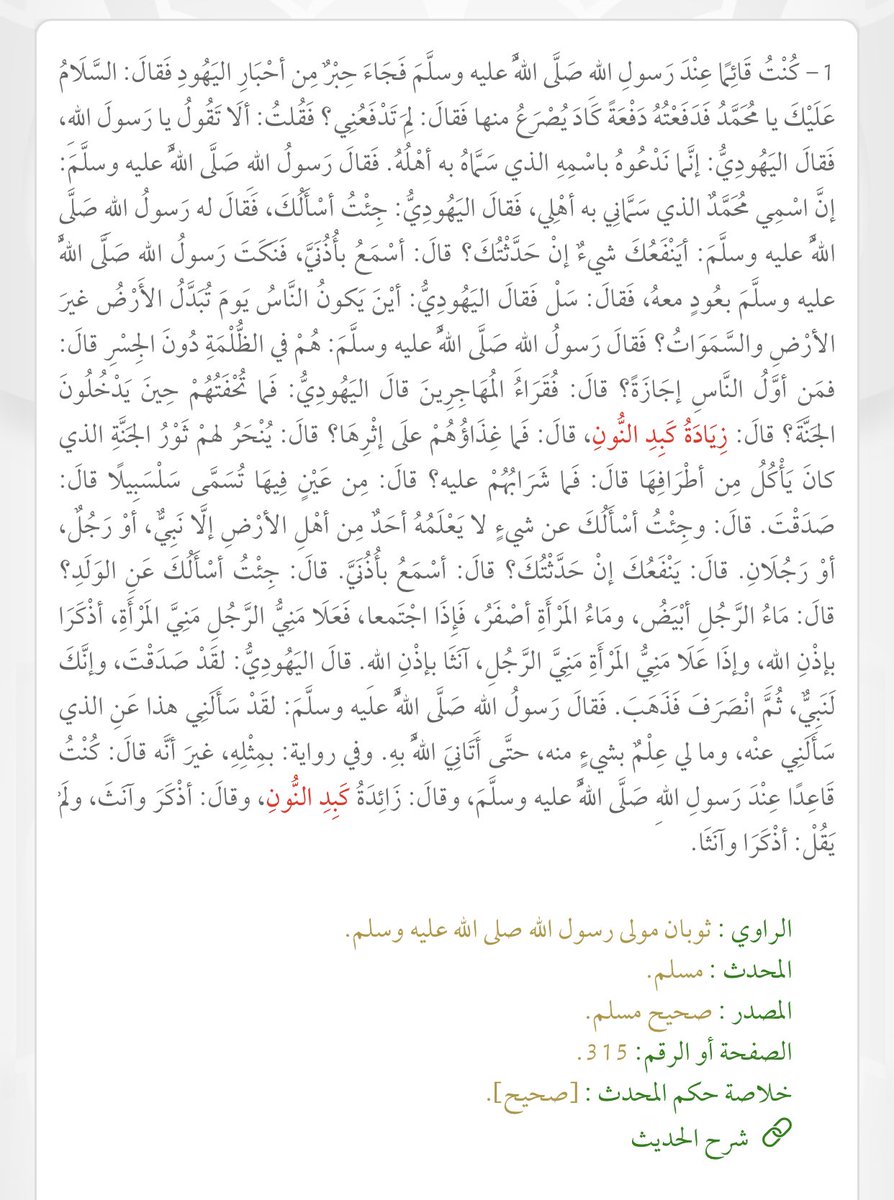 1- كُنْتُ قَائِمًا عِنْدَ رَسولِ الله صَلَّى اللهُ عليه وسلَّمَ فَجَاءَ حِبْرٌ مِن أحْبَارِ اليَهُودِ فَقالَ: السَّلَامُ
عَلَيْكَ يا مُحَمَّدُ فَدَفَعْتُهُ دَفْعَةً كَادَ يُصْرَعُ منها فَقالَ: لِمَ تَدْفَعُنِي؟ فَقُلتُ: ألَا تَقُولُ يا رَسولَ الله،
فَقالَ اليَهُودِيُّ: إنَّما نَدْعُوهُ باسْمِهِ الذي سَمَّاهُ به أهْلُهُ. فَقالَ رَسولُ الله صَلَّى اللهُ عليه وسلَّمَ:
إنَّ اسْمِي مُحَمَّدٌ الذي سَمَّانِي به أهْلِي، فَقالَ اليَهُودِيُّ: جِئْتُ أسْأَلُكَ، فَقالَ له رَسولُ الله صَلَّى
اللهُ عليه وسلَّمَ: أيَنْفَعُكَ شيءٌ إنْ حَدَّثْتُكَ؟ قالَ: أسْمَعُ بأُذُنَيَّ، فَنَكَتَ رَسولُ الله صَلَّى اللهُ
عليه وسلَّمَ بعُودٍ معهُ، فَقالَ: سَلْ فَقالَ اليَهُودِيُّ: أيْنَ يَكونُ النَّاسُ يَومَ تُبَدَّلُ الأرْضُ غيرَ
الأرْضِ والسَّمَوَاتُ؟ فَقالَ رَسولُ الله صَلَّى اللهُ عليه وسلَّمَ: هُمْ في الظُّلْمَةِ دُونَ الجِسْرِ قالَ:
فمَن أوَّلُ النَّاسِ إجَازَةً؟ قالَ: فُقَرَاءُ المُهَاجِرِينَ قالَ اليَهُودِيُّ: فَما تُحْفَتُهُمْ حِينَ يَدْخُلُونَ
الجَنَّةَ؟ قالَ: زِيَادَةُ كَبِدِ النُّونِ، قالَ: فَما غِذَاؤُهُمْ علَى إثْرِهَا؟ قالَ: يُنْحَرُ لهمْ ثَوْرُ الجَنَّةِ الذي
كانَ يَأْكُلُ مِن أطْرَافِهَا قالَ: فَما شَرَابُهُمْ عليه؟ قالَ: مِن عَيْنٍ فِيهَا تُسَمَّى سَلْسَبِيلًا قالَ:
صَدَقْتَ. قالَ: وجِئْتُ أسْأَلُكَ عن شيءٍ لا يَعْلَمُهُ أحَدٌ مِن أهْلِ الأرْضِ إلَّا نَبِيٌّ، أوْ رَجُلٌ،
أوْ رَجُلَانِ. قالَ: يَنْفَعُكَ إنْ حَدَّثْتُكَ؟ قالَ: أسْمَعُ بأُذُنَيَّ. قالَ: جِئْتُ أسْأَلُكَ عَنِ الوَلَدِ؟
قالَ: مَاءُ الرَّجُلِ أبْيَضُ، ومَاءُ المَرْأَةِ أصْفَرُ، فَإِذَا اجْتَمعا، فَعَلَا مَنِيُّ الرَّجُلِ مَنِيَّ المَرْأَةِ، أذْكَرَا
بإذْنِ الله، وإذَا عَلَا مَنِيُّ المَرْأَةِ مَنِيَّ الرَّجُلِ، آنَثَا بإذْنِ الله. قالَ اليَهُودِيُّ: لقَدْ صَدَقْتَ، وإنَّكَ
لَنَبِيٌّ، ثُمَّ انْصَرَفَ فَذَهَبَ. فَقالَ رَسولُ الله صَلَّى اللهُ علَيه وسلَّمَ: لقَدْ سَأَلَنِي هذا عَنِ الذي
سَأَلَنِي عنْه، وما لي عِلْمٌ بشيءٍ منه، حتَّى أَتَانِيَ اللهُ بهِ. وفي رواية: بمِثْلِهِ، غيرَ أنَّه قالَ: كُنْتُ
قَاعِدًا عِنْدَ رَسولِ اللهِ صَلَّى اللهُ عليه وسلَّمَ، وقالَ: زَائِدَةُ كَبِدِ النُّونِ، وقالَ: أذْكَرَ وآنَثَ، ولَمْ
يَقُلْ: أذْكَرَا وآنَثَا.
الراوي : ثوبان مولى رسول الله صلى الله عليه وسلم.
المحدث : مسلم.
المصدر : صحيح مسلم.
الصفحة أو الرقم: 315.
خلاصة حكم المحدث : [صحيح].
شرح الحديث